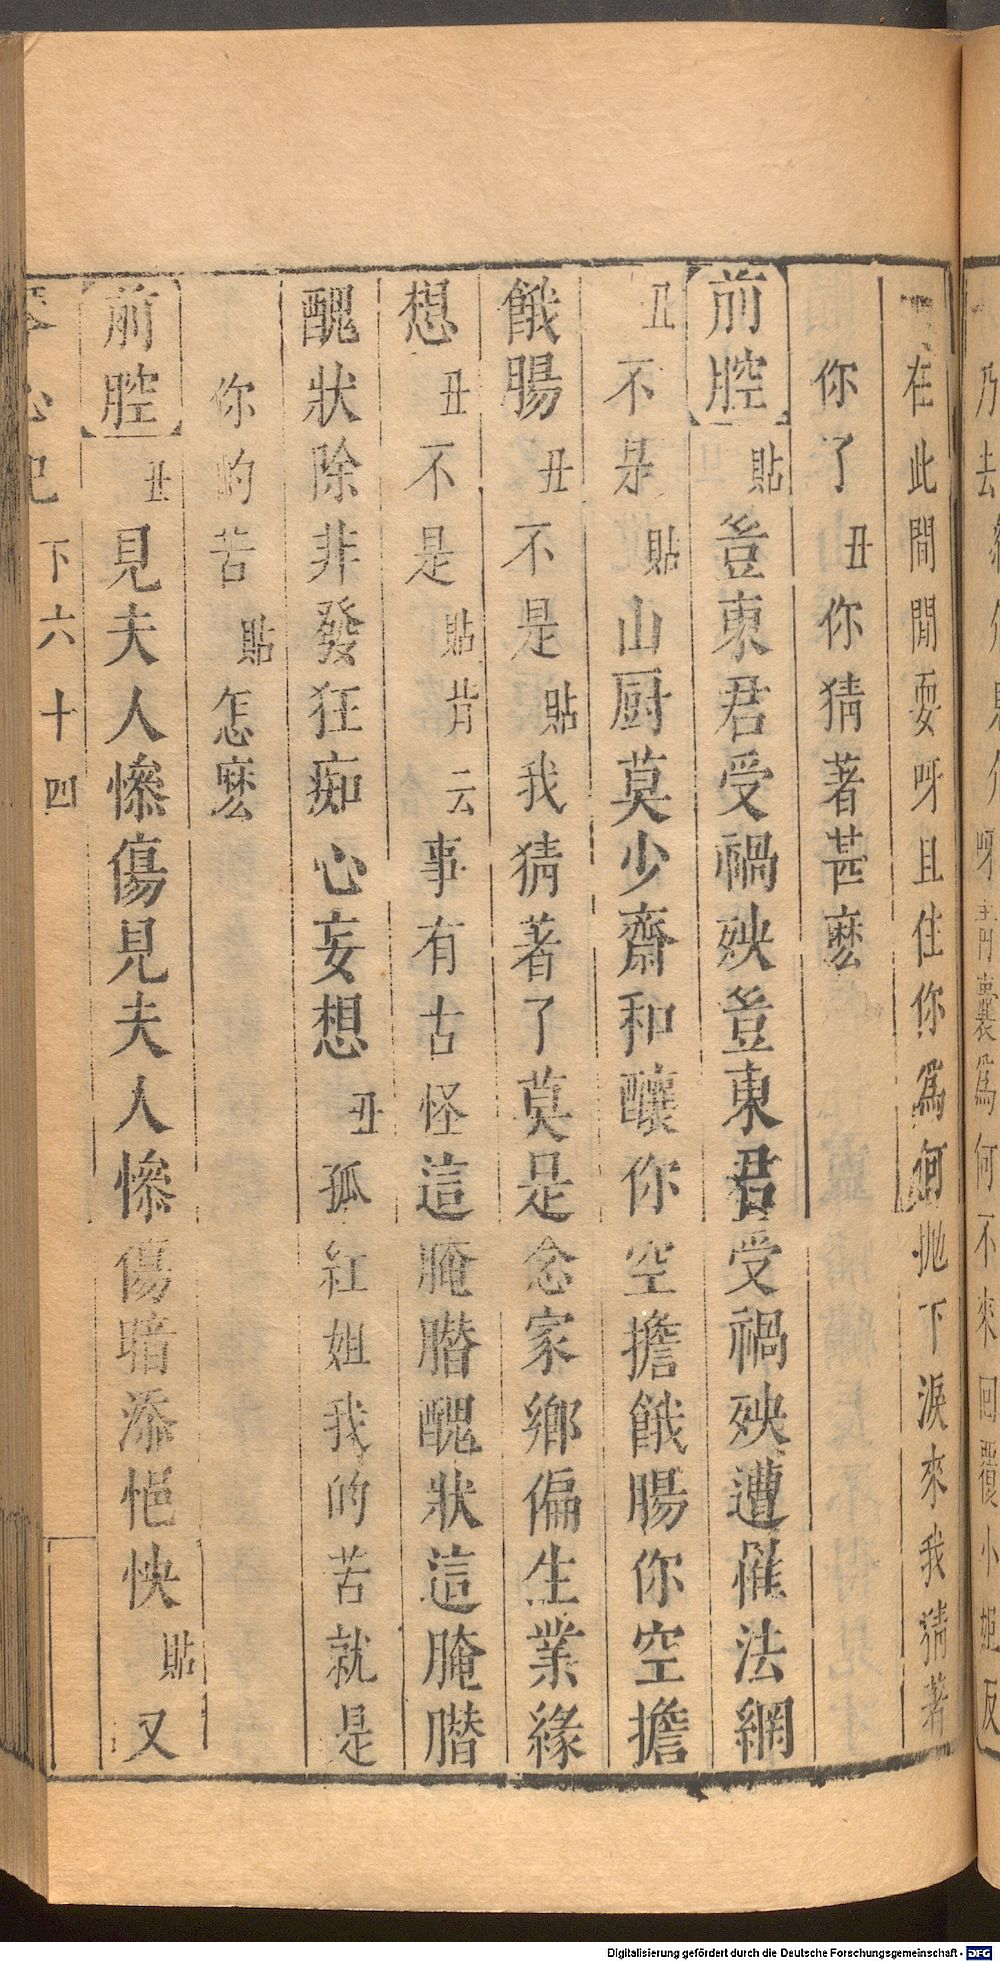 乃去 介 介呀青囊爲何不來回覆小姐反
在此間閒耍呀且住你爲何拋下淚來我猜著
你了丑你猜著甚麽
前腔貼豈東君受禍殃豈東君受禍殃遭催法網
丑不是貼山厨莫少齋和釀你空擔餓腸你空擔
餓腸丑不是貼我猜著了莫是念家鄉偏生業緣
想丑不是貼背云事有古怪這腌臢醜狀這腌臢
醜狀除非發狂痴心妄想丑孤紅姐我的苦就是
你的苦貼怎麽
前腔丑見夫人慘傷見夫人慘傷暗添悒怏貼又
琴心記 下六十四
Digitalisierung gefördert durch die Deutsche Forschungsgemeinschaft - DFG